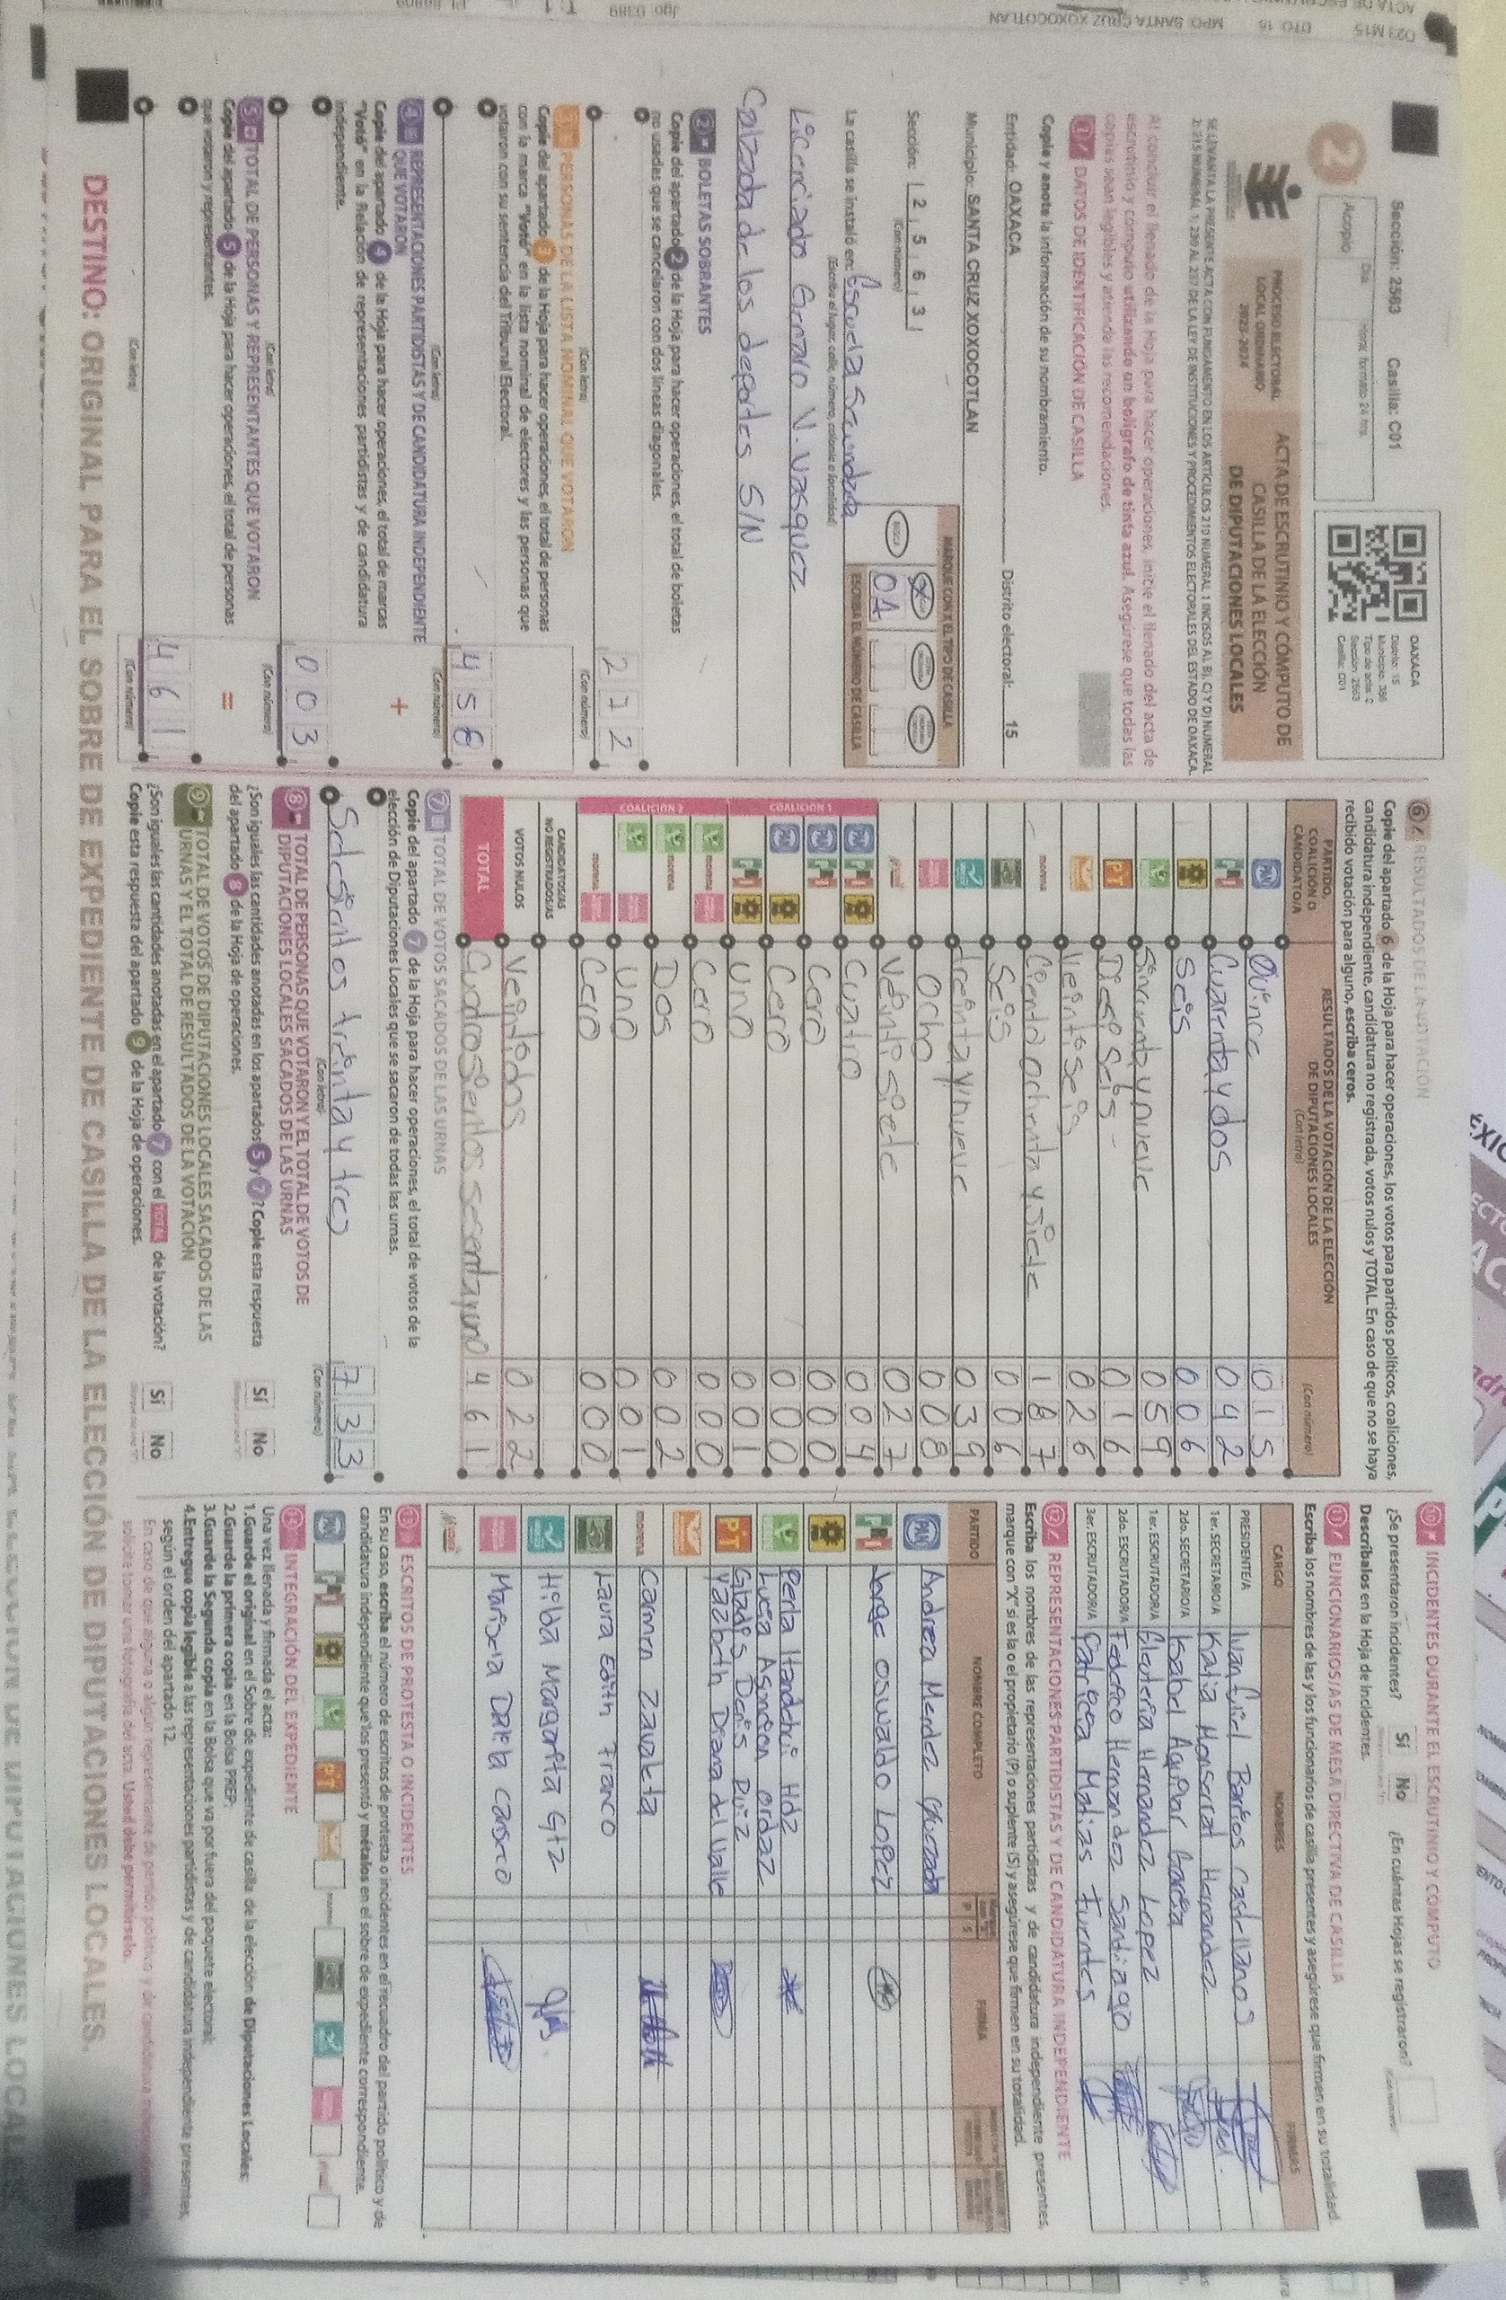 Sección: 2563 Casilla: C01
Acopio
Día
Hora, formato 24 hrs.
OAXACA
Distrito: 15
Sección: 2563
Casilla: C01
PROCESO ELECTORAL
LOCAL ORDINARIO
2023-2024
ACTA DE ESCRUTINIO Y CÓMPUTO DE
CASILLA DE LA ELECCIÓN
DE DIPUTACIONES LOCALES
SE LEVANTA LA PRESENTE ACTA CON FUNDAMENTO EN LOS ARTÍCULOS 210 NUMERAL 1 INCISOS A), B), C) Y D) NUMERAL
2; 215 NUMERAL 1; 230 AL 237 DE LA LEY DE INSTITUCIONES Y PROCEDIMIENTOS ELECTORALES DEL ESTADO DE OAXACA.
Al concluir el llenado de la Hoja para hacer operaciones, inicie el llenado del acta de
escrutinio y cómputo utilizando un bolígrafo de tinta azul. Asegúrese que todas las
copias sean legibles y atienda las recomendaciones.
1 DATOS DE IDENTIFICACIÓN DE CASILLA
Copie y anote la información de su nombramiento.
Entidad: OAXACA Distrito electoral: 15
Municipio: SANTA CRUZ XOXOCOTLAN
Sección: 2 5 6 3
(Con número)
MARQUE CON X EL TIPO DE CASILLA
BÁSICA
01
ESCRIBA EL NÚMERO DE CASILLA
La casilla se instaló en: Escuela Secundada
(Escriba el lugar, calle, número, colonia o localidad)
Licenciado Genaro V. Vasquez
Calzada de los deportes S/N
2 BOLETAS SOBRANTES
Copie del apartado 2 de la Hoja para hacer operaciones, el total de boletas
no usadas que se cancelaron con dos líneas diagonales.
272
(Con letra) (Con número)
3 PERSONAS DE LA LISTA NOMINAL QUE VOTARON
Copie del apartado 3 de la Hoja para hacer operaciones, el total de personas
con la marca "Votó" en la lista nominal de electores y las personas que
votaron con su sentencia del Tribunal Electoral.
458
(Con letra) (Con número)
4 REPRESENTACIONES PARTIDISTAS Y DE CANDIDATURA INDEPENDIENTE
QUE VOTARON
+
Copie del apartado 4 de la Hoja para hacer operaciones, el total de marcas
"Votó" en la Relación de representaciones partidistas y de candidatura
independiente.
003
(Con letra) (Con número)
5 TOTAL DE PERSONAS Y REPRESENTANTES QUE VOTARON
=
Copie del apartado 5 de la Hoja para hacer operaciones, el total de personas
que votaron y representantes.
461
(Con letra) (Con número)
6 RESULTADOS DE LA VOTACIÓN
Copie del apartado 6 de la Hoja para hacer operaciones, los votos para partidos políticos, coaliciones,
candidatura independiente, candidatura no registrada, votos nulos y TOTAL. En caso de que no se haya
recibido votación para alguno, escriba ceros.
PARTIDO,
COALICIÓN O
CANDIDATO/A
RESULTADOS DE LA VOTACIÓN DE LA ELECCIÓN
DE DIPUTACIONES LOCALES
(Con letra) (Con número)
PAN Quince 015
PRI Cuarenta y dos 042
Seis 006
Sincuenta y nueve 059
PT Dieci Seis 016
Veinti seis 026
morena Ciento ochenta y siete 187
Seis 006
treinta y nueve 039
ocho 008
Veinti siete 027
COALICIÓN 1
PAN PRI Cuatro 004
PAN PRI Cero 000
PAN Cero 000
PRI Uno 001
COALICIÓN 2
morena Cero 000
morena Dos 002
Uno 001
morena Cero 000
CANDIDATOS/AS
NO REGISTRADOS/AS
VOTOS NULOS Veintidos 022
TOTAL Cuatrosientos sesenta y uno 461
7 TOTAL DE VOTOS SACADOS DE LAS URNAS
Copie del apartado 7 de la Hoja para hacer operaciones, el total de votos de la
elección de Diputaciones Locales que se sacaron de todas las urnas.
Setesientos treinta y tres 733
(Con letra) (Con número)
8 TOTAL DE PERSONAS QUE VOTARON Y EL TOTAL DE VOTOS DE
DIPUTACIONES LOCALES SACADOS DE LAS URNAS
¿Son iguales las cantidades anotadas en los apartados 5 y 7? Copie esta respuesta
del apartado 8 de la Hoja de operaciones.
Sí No
9 TOTAL DE VOTOS DE DIPUTACIONES LOCALES SACADOS DE LAS
URNAS Y EL TOTAL DE RESULTADOS DE LA VOTACIÓN
¿Son iguales las cantidades anotadas en el apartado 7 con el TOTAL de la votación?
Copie esta respuesta del apartado 9 de la Hoja de operaciones.
Sí No
10 INCIDENTES DURANTE EL ESCRUTINIO Y CÓMPUTO
¿Se presentaron incidentes? Sí No ¿En cuántas Hojas se registraron?
Descríbalos en la Hoja de Incidentes.
11 FUNCIONARIOS/AS DE MESA DIRECTIVA DE CASILLA
Escriba los nombres de las y los funcionarios de casilla presentes y asegúrese que firmen en su totalidad.
CARGO NOMBRES FIRMAS
PRESIDENTE/A Ivan Eliel Barrios Castellanos
1er. SECRETARIO/A Katia Monserrat Hernandez
2do. SECRETARIO/A Isabel Aquilar Garcia
1er. ESCRUTADOR/A Eleuteria Hernandez Lopez
2do. ESCRUTADOR/A Federico Hernandez Santiago
3er. ESCRUTADOR/A Patricia Matias Fuentes
12 REPRESENTACIONES PARTIDISTAS Y DE CANDIDATURA INDEPENDIENTE
Escriba los nombres de las representaciones partidistas y de candidatura independiente presentes,
marque con "X" si es la o el propietario (P) o suplente (S) y asegúrese que firmen en su totalidad.
PARTIDO NOMBRE COMPLETO P S FIRMA
PAN Andrea Mendez
PRI Jorge Oswaldo Lopez
Perla Itandehui Hdz
Lucia Asuncion ordaz
PT Gladis Denis Ruiz
Yazbeth Diana del Valle
morena Carmen Zavaleta
Laura Edith Franco
Hilba Margarita Gtz
Marisela Dalila Carsco
13 ESCRITOS DE PROTESTA O INCIDENTES
En su caso, escriba el número de escritos de protesta o incidentes en el recuadro del partido político y de
candidatura independiente que los presentó y métalos en el sobre de expediente correspondiente.
PAN PRI PT morena
14 INTEGRACIÓN DEL EXPEDIENTE
Una vez llenada y firmada el acta:
1.Guarde el original en el Sobre de expediente de casilla de la elección de Diputaciones Locales;
2.Guarde la primera copia en la Bolsa PREP;
3.Guarde la Segunda copia en la Bolsa que va por fuera del paquete electoral;
4.Entregue copia legible a las representaciones partidistas y de candidatura independiente presentes,
según el orden del apartado 12.
solicite tomar una fotografía del acta. Usted debe permitírselo.
DESTINO: ORIGINAL PARA EL SOBRE DE EXPEDIENTE DE CASILLA DE LA ELECCIÓN DE DIPUTACIONES LOCALES.